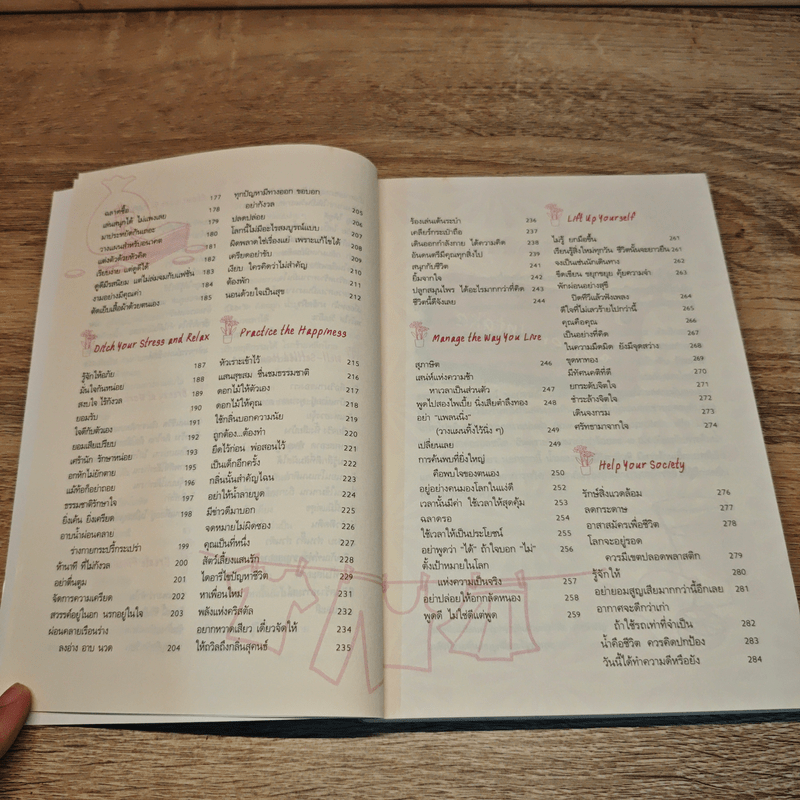 ฉลาดซื้อ 177
เล่นสนุกได้ ไม่แพงเลย 178
มาประหยัดกันเถอะ 179
วางแผนสำหรับอนาคต 180
แต่งตัวด้วยหัวคิด 181
เรียบง่าย แต่ดูดีได้ 182
ดูดีมีรสนิยม แต่ไม่ล่มจมกับแฟชั่น 183
งามอย่างมีคุณค่า 184
ตัดเย็บเสื้อผ้าด้วยตนเอง 185
Ditch Your Stress and Relax
รู้จักให้อภัย 187
มั่นใจกันหน่อย 188
สงบใจ ไร้กังวล 189
ยอมรับ 190
ใจดีกับตัวเอง 191
ยอมเสียเปรียบ 192
เศร้านัก รักษาหน่อย 193
อกหักไม่ยักตาย 194
แม้ท้อก็อย่าถอย 195
ธรรมชาติรักษาใจ 196
ยิ่งเต้น ยิ่งเครียด 197
อาบน้ำผ่อนคลาย 198
ร่างกายกระปรี้กระเปร่า 199
ห้านาที ที่ไม่กังวล 200
อย่าตื่นตูม 201
จัดการความเครียด 202
สวรรค์อยู่ในอก นรกอยู่ในใจ 203
ผ่อนคลายเรือนร่าง
ลงอ่าง อาบ นวด 204
ทุกปัญหามีทางออก ขอบอก
อย่ากังวล 205
ปลดปล่อย 206
โลกนี้ไม่มีอะไรสมบูรณ์แบบ 207
ผิดพลาดใช่เรื่องแย่ เพราะแก้ไขได้ 208
เครียดอย่าขับ 209
เงียบ ใครคิดว่าไม่สำคัญ 210
ต้องพัก 211
นอนด้วยใจเป็นสุข 212
Practice the Happiness
หัวเราะเข้าไว้ 215
แสนสุขสม ชื่นชมธรรมชาติ 216
ดอกไม้ให้ตัวเอง 217
ดอกไม้ให้คุณ 218
ใช้กลิ่นบอกความนัย 219
ถูกต้อง...ต้องทำ 220
ยืดไว้ก่อน พ่อสอนไว้ 221
เป็นเด็กอีกครั้ง 222
กลิ่นนั้นสำคัญไฉน 223
อย่าให้น้ำลายบูด 224
มีข่าวดีมาบอก 225
จดหมายไม่ผิดซอง 226
คุณเป็นที่หนึ่ง 227
สัตว์เลี้ยงแสนรัก 228
ไดอารี่ไขปัญหาชีวิต 229
หาเพื่อนใหม่ 231
พลังแห่งคริสตัล 232
อยากหวาดเสียว เดี๋ยวจัดให้ 234
ให้ถวิลถึงกลิ่นสุคนธ์ 235
ร้องเล่นเต้นระบำ 236
เคลียร์กระเป๋าถือ 237
เดินออกกำลังกาย ได้ความคิด 238
อันดนตรีมีคุณทุกสิ่งไป 239
สนุกกับชีวิต 241
ยิ้มจากใจ 242
ปลูกสมุนไพร ได้อะไรมากกว่าที่คิด 243
ชีวิตนี้ดีจังเลย 244
Manage the Way You Live
สุภาษิต 246
เสน่ห์แห่งความช้า
หาเวลาเป็นส่วนตัว 247
พูดไปสองไพเบี้ย นิ่งเสียตำลึงทอง 248
อย่า "แพลนนิ่ง"
(วางแผนทิ้งไว้นิ่ง ๆ) 249
เปลี่ยนเลย 249
การค้นพบที่ยิ่งใหญ่
คือพบใจของตนเอง 250
อยู่อย่างคนมองโลกในแง่ดี 252
เวลานั้นมีค่า ใช้เวลาให้สุดคุ้ม 253
ฉลาดรอ 254
ใช้เวลาให้เป็นประโยชน์ 255
อย่าพูดว่า "ได้" ถ้าใจบอก "ไม่" 256
ตั้งเป้าหมายในโลก
แห่งความเป็นจริง 257
อย่าปล่อยให้อกกลัดหนอง 258
พูดดี ไม่ใช่ดีแต่พูด 259
Lift Up Yourself
ไม่รู้ ยกมือขึ้น 261
เรียนรู้สิ่งใหม่ทุกวัน ชีวิตนั้นจะยาวยืน 261
จงเป็นเช่นนักเดินทาง 262
ขีดเขียน ขยุกขยุย คุ้ยความจำ 263
พักผ่อนอย่างสุขี
ปิดทีวีแล้วฟังเพลง 264
ดีใจที่ไม่เลวร้ายไปกว่านี้ 265
คุณคือคุณ 266
เป็นอย่างที่คิด 267
ในความมืดมิด ยังมีจุดสว่าง 268
ขุดหาทอง 269
มีทัศนคติที่ดี 270
ยกระดับจิตใจ 271
ชำระล้างจิตใจ 272
เดินจงกรม 273
ศรัทธามาจากใจ 274
Help Your Society
รักษ์สิ่งแวดล้อม 276
ลดกระดาษ 277
อาสาสมัครเพื่อชีวิต 278
โลกจะอยู่รอด
ควรมีเขตปลอดพลาสติก 279
รู้จักให้ 280
อย่ายอมสูญเสียมากกว่านี้อีกเลย 281
อากาศจะดีกว่าเก่า
ถ้าใช้รถเท่าที่จำเป็น 282
น้ำคือชีวิต ควรคิดปกป้อง 283
วันนี้ได้ทำความดีหรือยัง 284